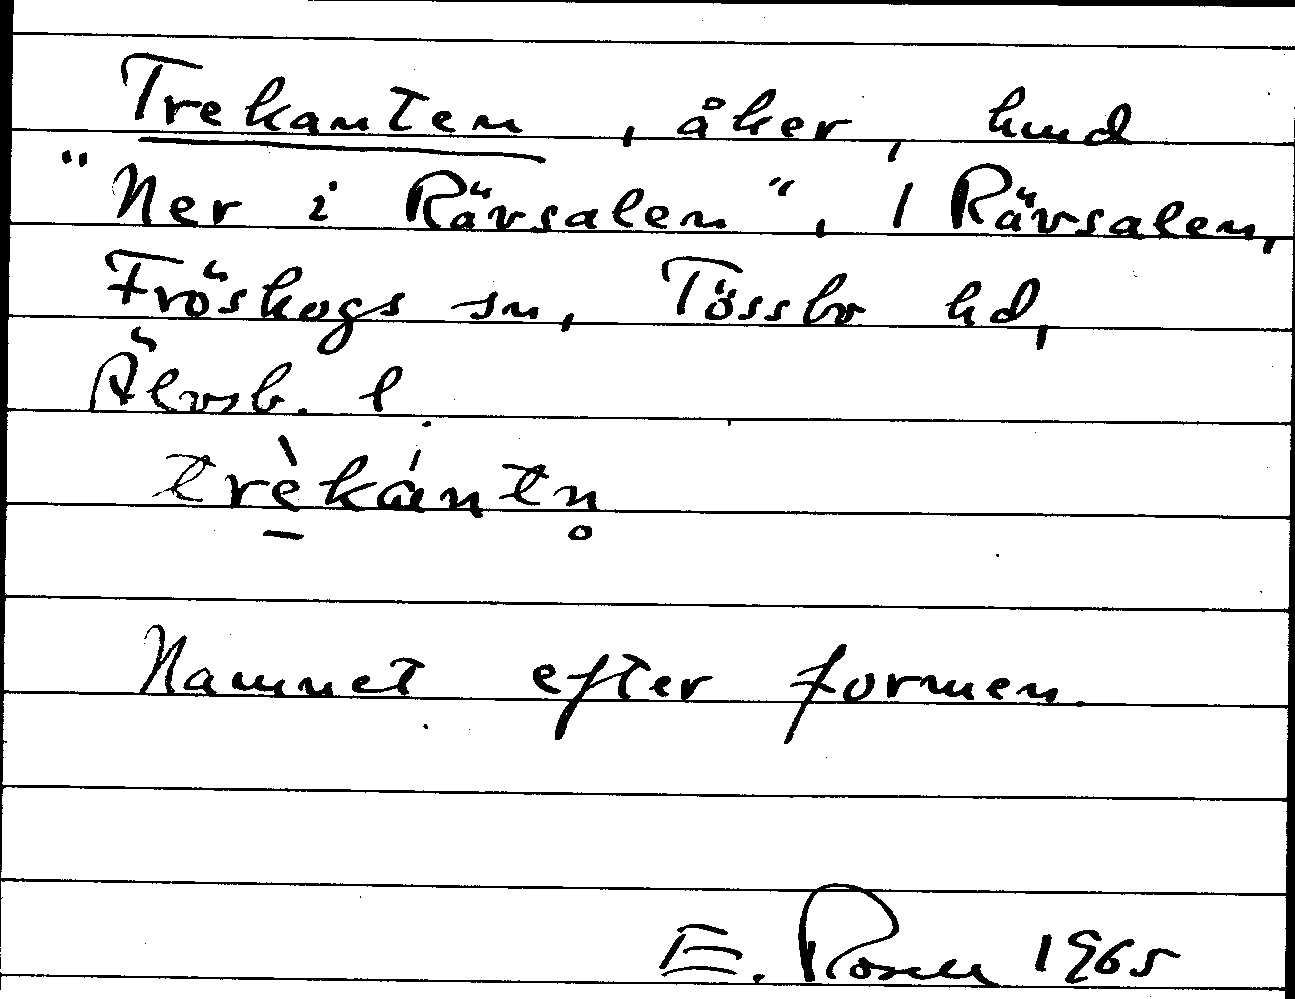 Trekanten, åker, hmd
"Ner i Rävsalen", 1 Rävsalen,
Fröskogs sn, Tössbo hd,
Älvsb. l
trèkántn̥
Namnet efter formen.
E. Rosell 1965